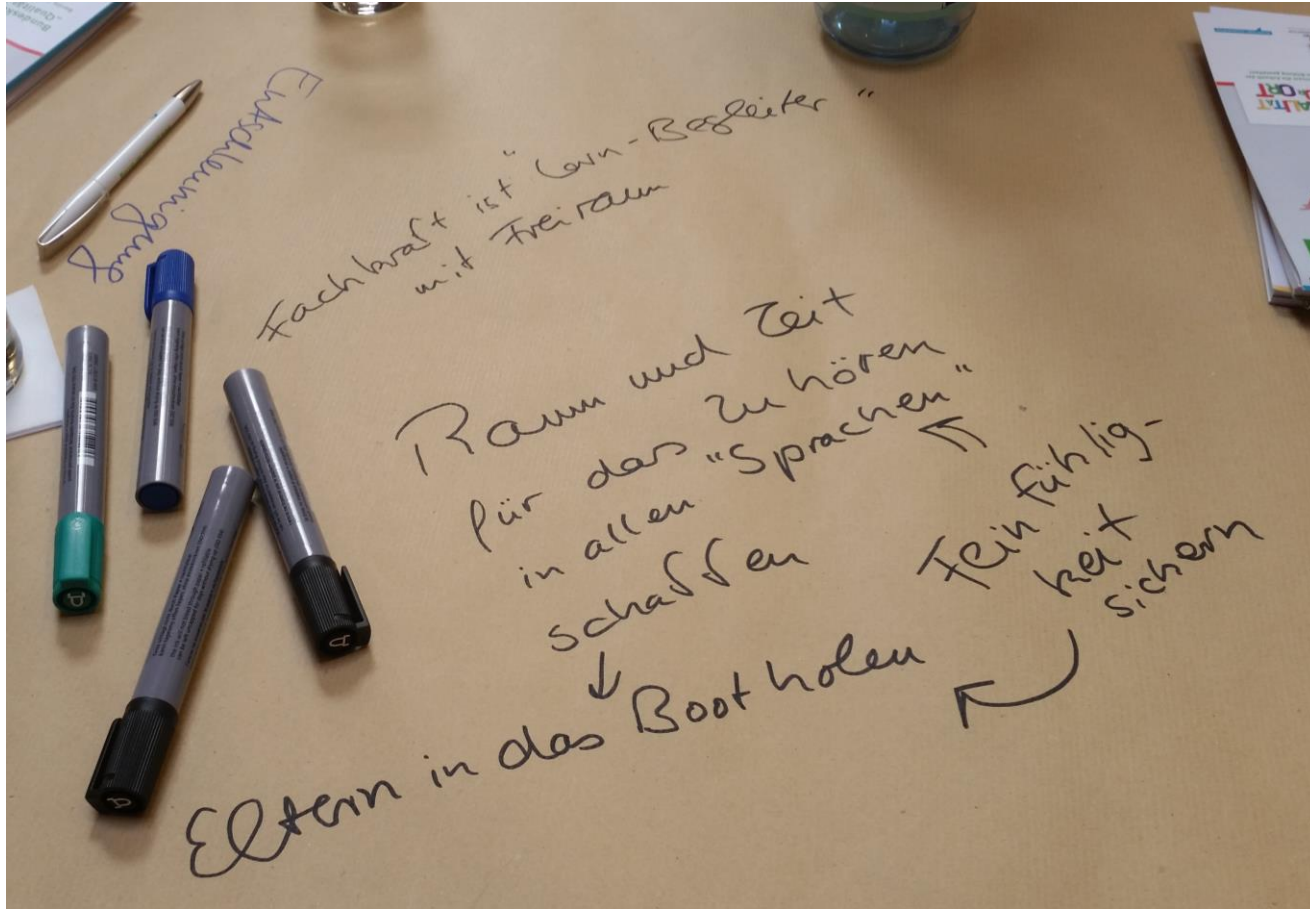 Entschleunigung
Fachkraft ist "Lern-Begleiter"
mit Freiraum
Raum und Zeit
für das Zuhören
in allen "Sprachen"
schaffen
Feinfühlig-
keit
sichern
Eltern in das Boot holen